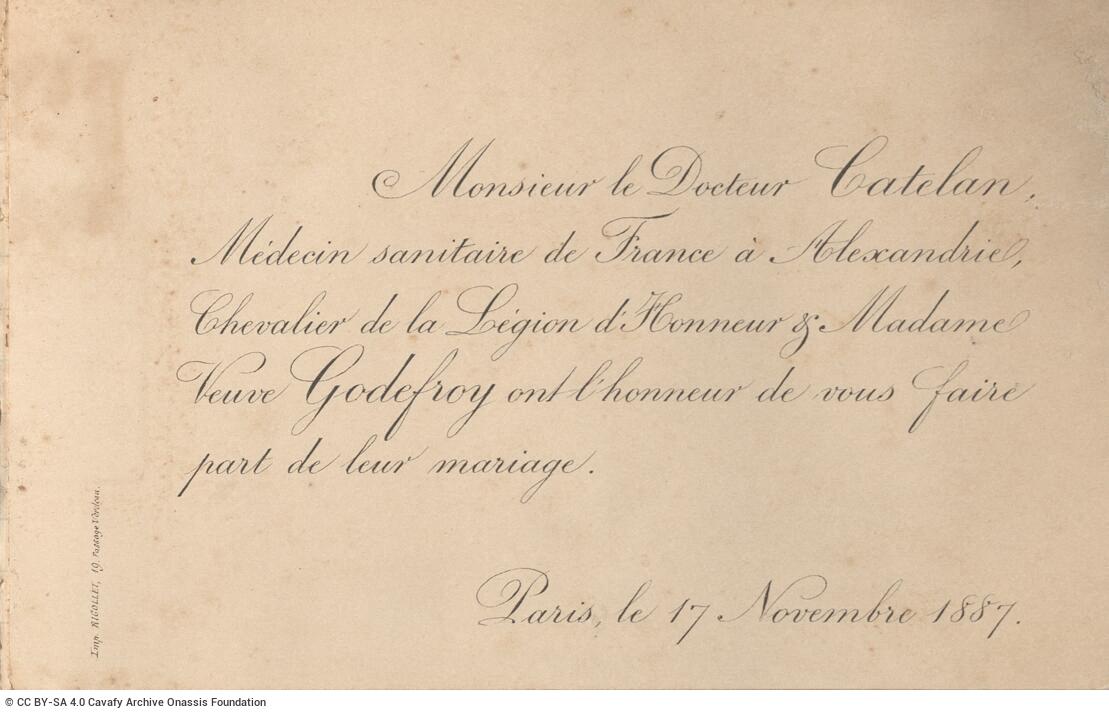 Monsieur le Docteur Catelan,
Médecin sanitaire de France à Alexandrie,
Chevalier de la Légion d'Honneur & Madame
Veuve Godefroy ont l'honneur de vous faire
part de leur mariage.
Paris, le 17 Novembre 1887.
Imp. RIGOLLET, 19, Passage Verdeau.
© CC BY-SA 4.0 Cavafy Archive Onassis Foundation